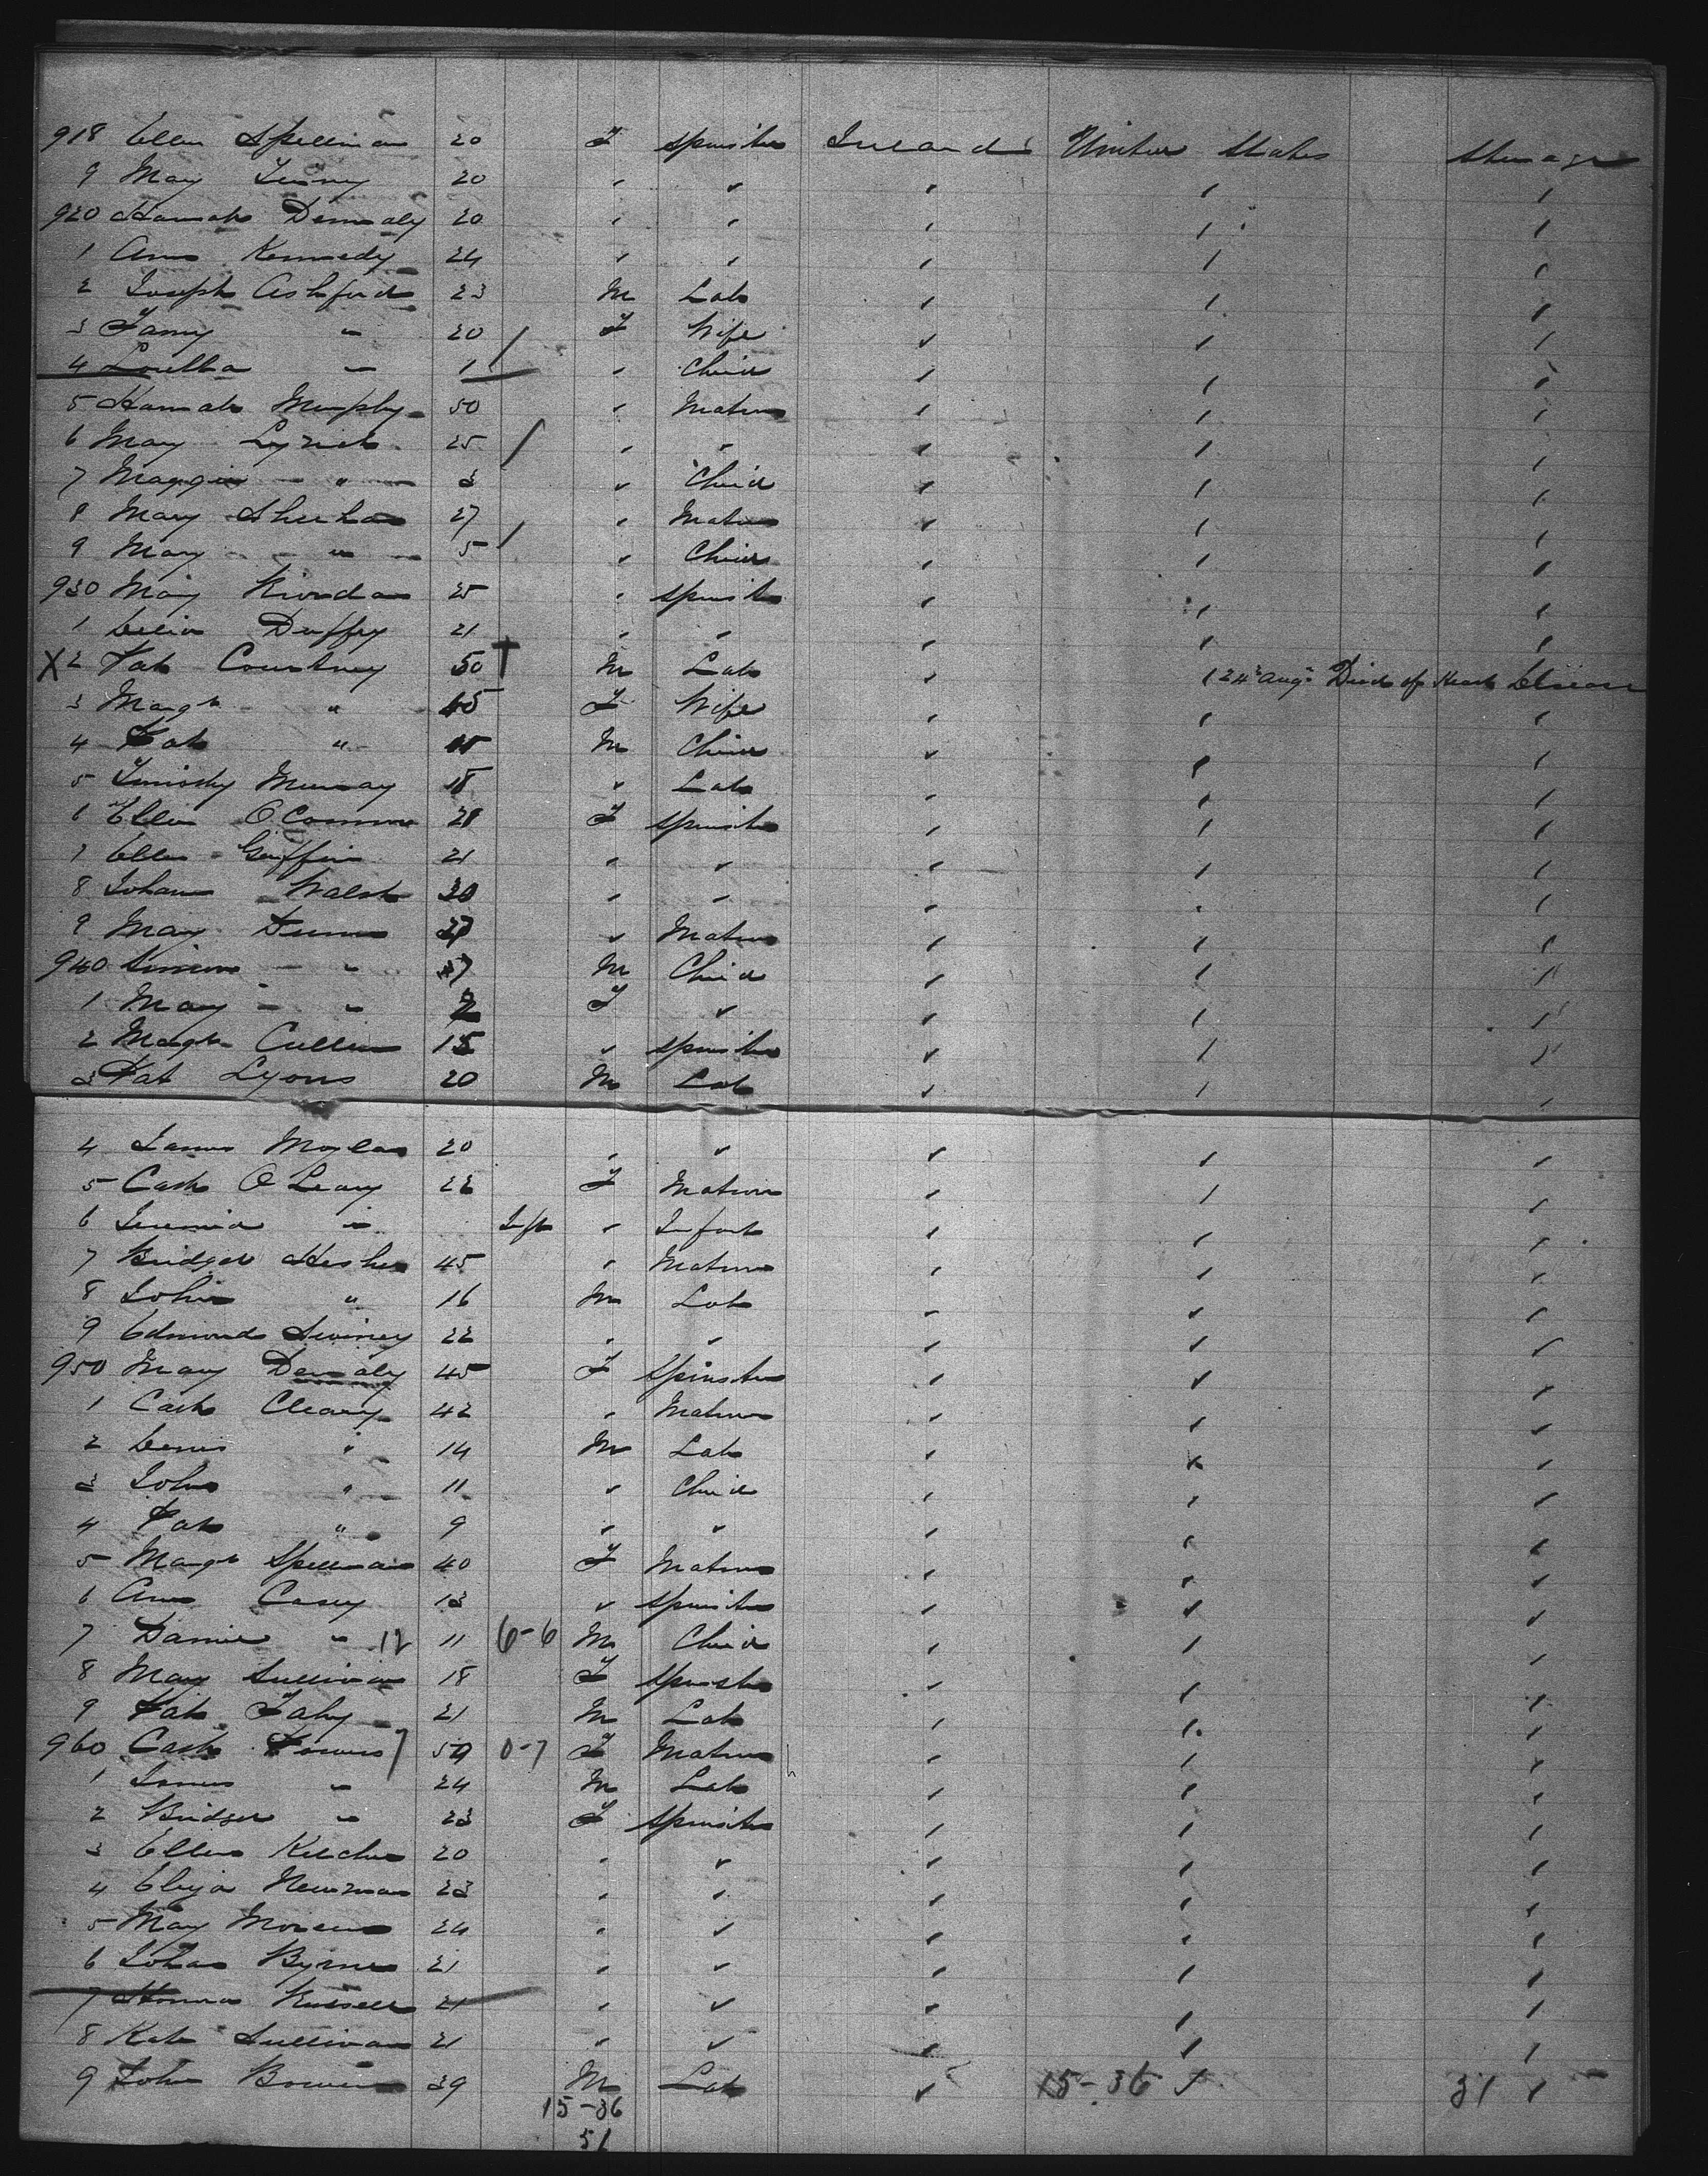 918 Ellen Spellman 20 F Spinster Ireland United States Steerage
9 Mary 20 " " " " "
920 Hannah Dennaly 20 " " " " "
1 Ann Kennedy 24 " " " " "
2 Joseph Ashford 23 M Lab " " "
3 Fanny " 20 F Wife " " "
4 Louella " 1 " Child " " "
5 Hannah Murphy 50 " Matron " " "
6 Mary Lynch 25 " " " " "
7 Maggie " 3 " Child " " "
8 Mary Sheehan 27 " Matron " " "
9 Mary " 5 " Child " " "
930 Mary Riordan 25 " Spinster " " "
1 Celia Duffey 21 " " " " "
X 2 Pat Courtney 50 † M Lab " " 24th Aug. Died of Heart Disease
3 Margt " 45 F Wife " " "
4 Pat " M Child " " "
5 Timothy Murray 18 " Lab " " "
6 Ellen O Connor F Spinster " " "
7 Ellen Griffin 21 " " " " "
8 Johan Walsh 30 " " " " "
9 Mary 27 " Matron " " "
940 " M Child " " "
1 Mary " 2 F " " " "
2 Margt Cullen 15 " Spinster " " "
3 Pat Lyons 20 M Lab " " "
4 James Moylan 20 " " " " "
5 Cath O Leary 22 F Matron " " "
6 Jeremia " Inft " Infant " " "
7 Bridget 45 " Matron " " "
8 John " 16 M Lab " " "
9 Edmond Sweney 22 " " " " "
950 Mary Dennaly 45 F Spinster " " "
1 Cath Cleary 42 " Matron " " "
2 Denis " 14 M Lab " " "
3 John " 11 " Child " " "
4 Pat " 9 " " " " "
5 Margt Spellman 40 F Matron " " "
6 Ann Casey 13 " Spinster " " "
7 Daniel " 12 11 6-6 M Child " " "
8 Mary Sullivan 18 F Spinster " " "
9 Pat Fahy 21 M Lab " " "
960 Cath 7 50 0-7 F Matron " " "
1 James " 24 M Lab " " "
2 Bridget " 23 F Spinster " " "
3 Ellen 20 " " " " "
4 Eliza Newman 23 " " " " "
5 Mary 24 " " " " "
6 Johan Byrnes 21 " " " " "
7 Honora Russell 21 " " " " "
8 Kate Sullivan 21 " " " " "
9 John 39 M Lab " 15-36 " 31 "
15-36
51